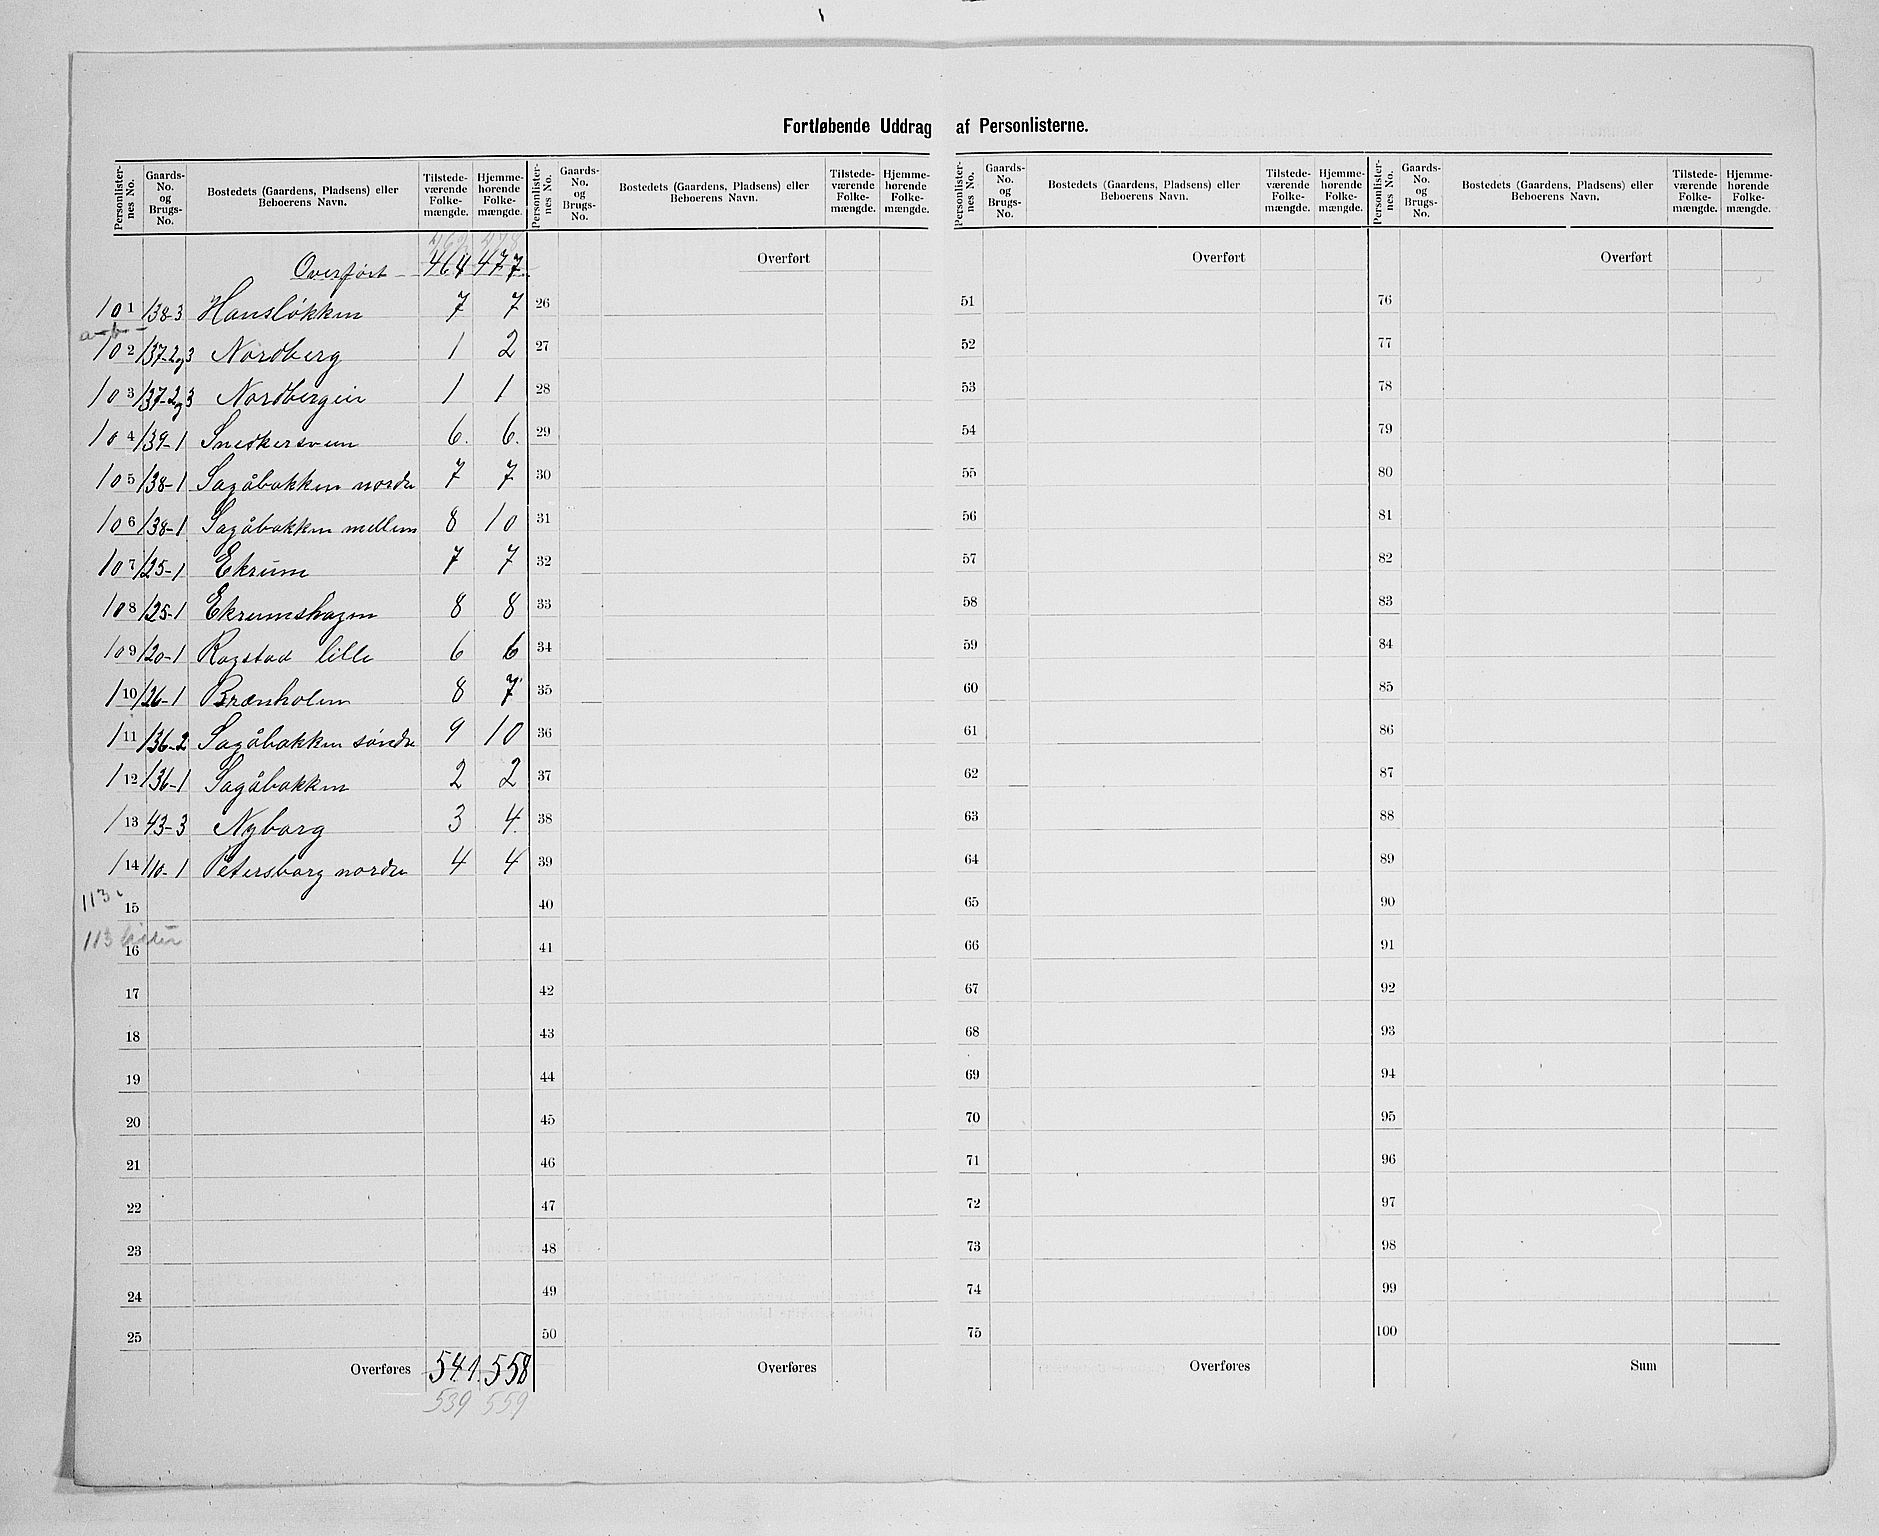 Fortløbende Uddrag af Personlisterne.
Personlister-nes No. Gaards-No. og Brugs-No. Bostedets (Gaardens, Pladsens) eller Beboerens Navn. Tilstede-værende Folke-mængde. Hjemme-hørende Folke-mængde.
462 478
Overført 464 477
101 138-3 Hansløkken 7 7
a-b-
102 137-2og3 Nordberg 1 2
103 137-2og3 Nordbergeie 1 1
104 139-1 Snedkersveen 6. 6.
105 138-1 Sagåbakken nordre 7 7
106 138-1 Sagåbakken mellem 8 10
107 125-1 Ekrum 7 7
108 125-1 Ekrumshagen 8 8
109 120-1 Ragstad lille 6 6
110 126-1 Brænholen 8 7
111 136-2 Sagåbakken søndre 9 10
112 136-1 Sagåbakken 2 2
113 43-3 Nyborg 3 4.
114 110-1 Petersborg nordre 4 4
113
15
113 lister
16
17
18
19
20
21
22
23
24
25
Overføres 541. 558
539 559
Personlister-nes No. Gaards-No. og Brugs-No. Bostedets (Gaardens, Pladsens) eller Beboerens Navn. Tilstede-værende Folke-mængde. Hjemme-hørende Folke-mængde.
Overført
26
27
28
29
30
31
32
33
34
35
36
37
38
39
40
41
42
43
44
45
46
47
48
49
50
Overføres
Personlister-nes No. Gaards-No. og Brugs-No. Bostedets (Gaardens, Pladsens) eller Beboerens Navn. Tilstede-værende Folke-mængde. Hjemme-hørende Folke-mængde.
Overført
51
52
53
54
55
56
57
58
59
60
61
62
63
64
65
66
67
68
69
70
71
72
73
74
75
Overføres
Personlister-nes No. Gaards-No. og Brugs-No. Bostedets (Gaardens, Pladsens) eller Beboerens Navn. Tilstede-værende Folke-mængde. Hjemme-hørende Folke-mængde.
Overført
76
77
78
79
80
81
82
83
84
85
86
87
88
89
90
91
92
93
94
95
96
97
98
99
100
Sum